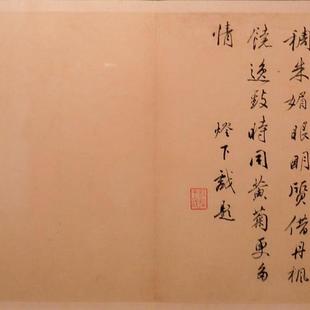 稠朱媚眼明赝借丹楓
饒逸致時同黃菊更多
情
燈下戲題